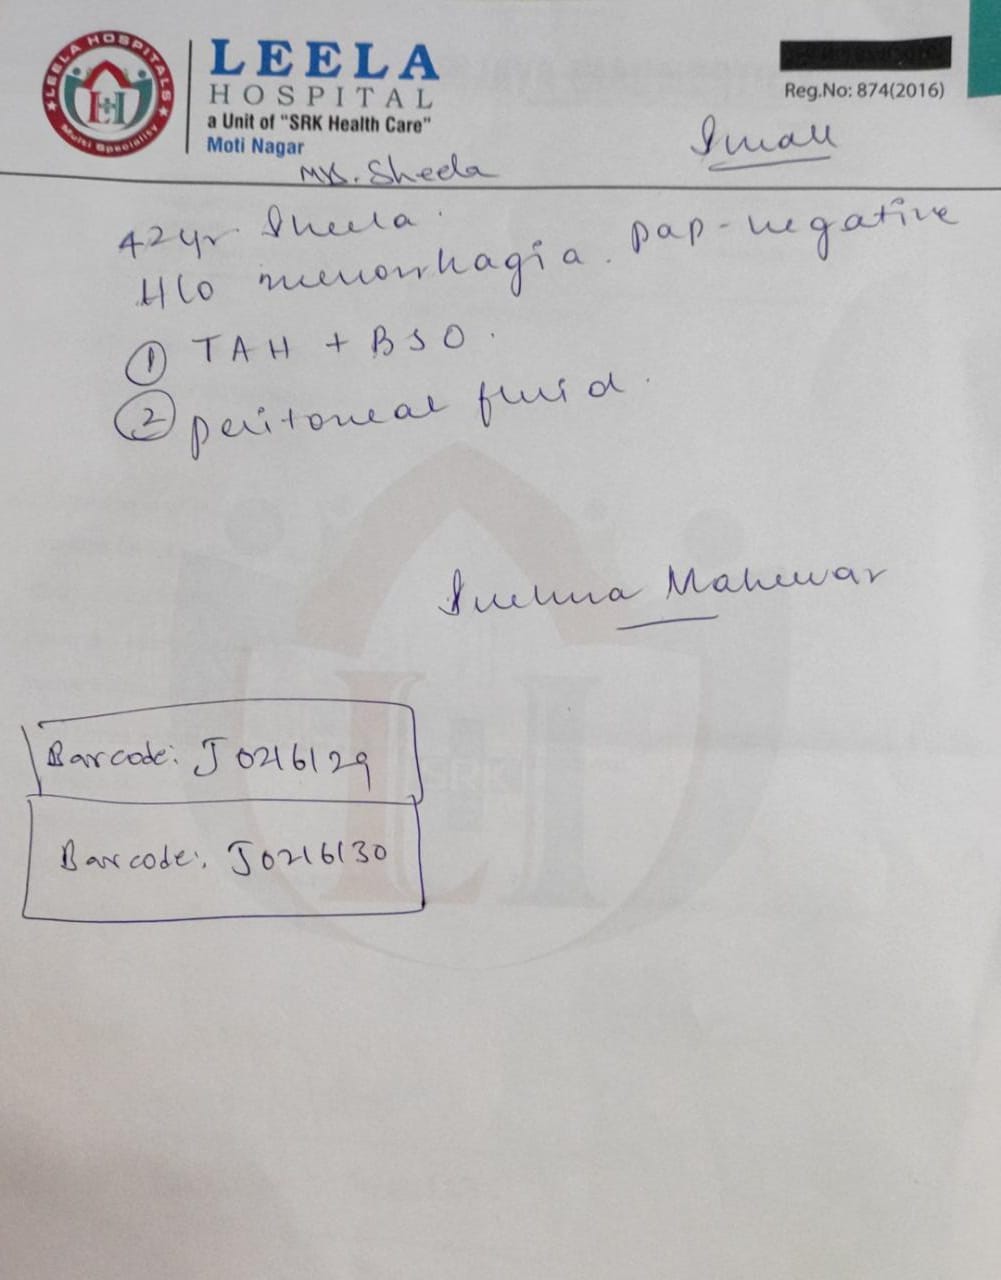 LEELA HOSPITALS
Multi Speciality
LEELA
HOSPITAL
a Unit of "SRK Health Care"
Moti Nagar
Reg.No: 874(2016)
Mrs. Sheela
42yr Sheela.
H/o menorrhagia. pap-negative
① TAH + BSO.
② peritoneal fluid.
Mahewar
SRK
Barcode: J0216129
Barcode: J0216130